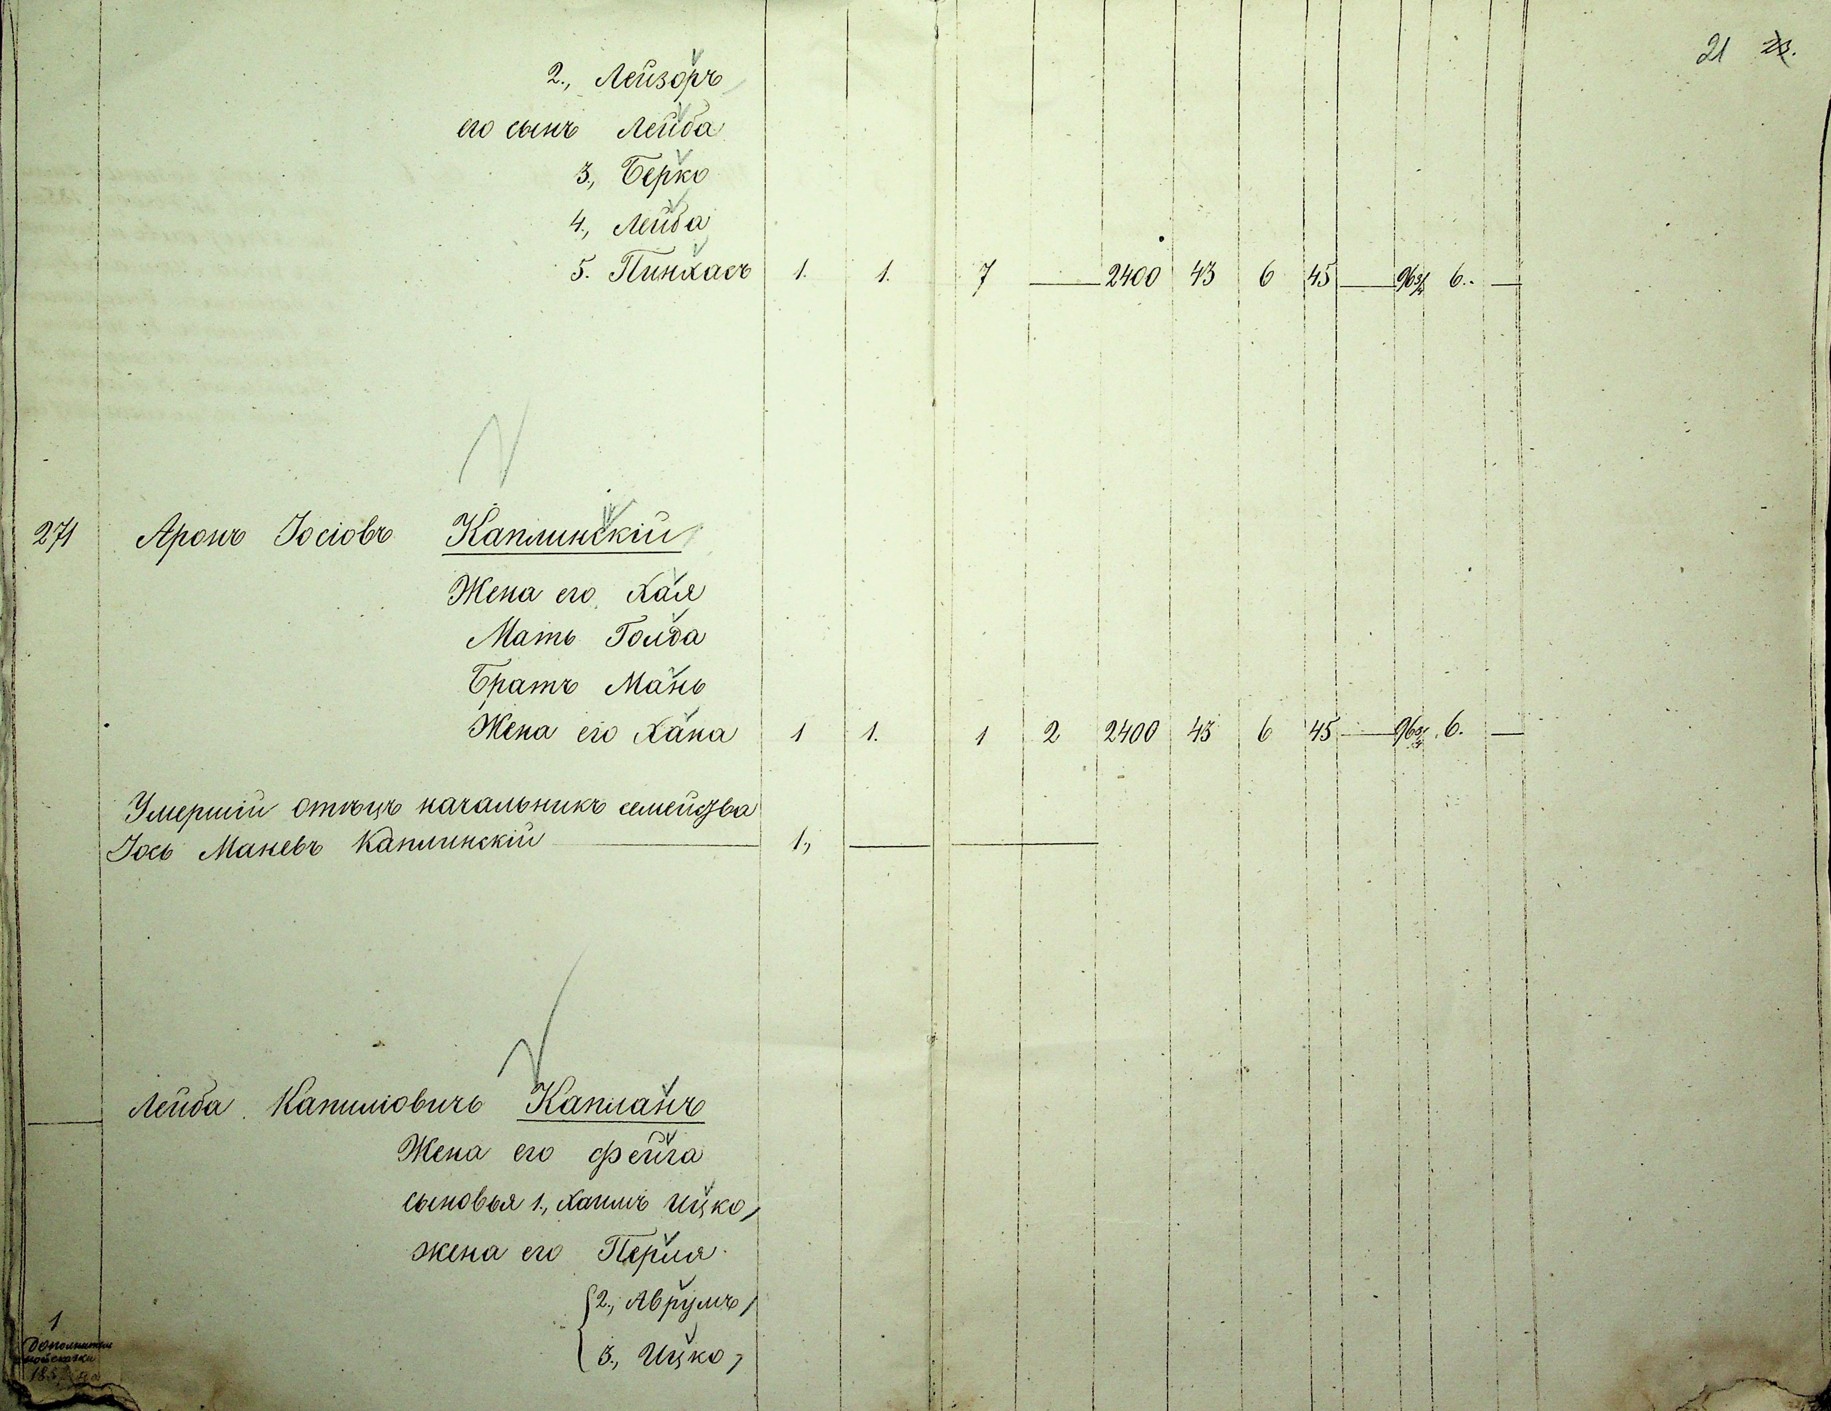 21 23.
2., Лейзоръ
его сынъ Лейба
3., Берко
4., Лейба
5. Пинхасъ 1. 1. 7 — 2400 43 6 45 — 96 3/4 6. —
271 Аронъ Іосіовъ Каплинскій
Жена его Хая
Мать Голда
Братъ Мань
Жена его Хана 1 1. 1 2 2400 43 6 45 — 96 3/4 6. —
Умершій отецъ начальникъ семейства
Іось Маневъ Каплинскій — 1., — —
Лейба Капиліовичъ Капланъ
Жена его Фейга
сыновья 1., Хаимъ Ицко,
жена его Перля
2., Аврумъ,
3., Ицко,
1
Дополнител
ной сказки